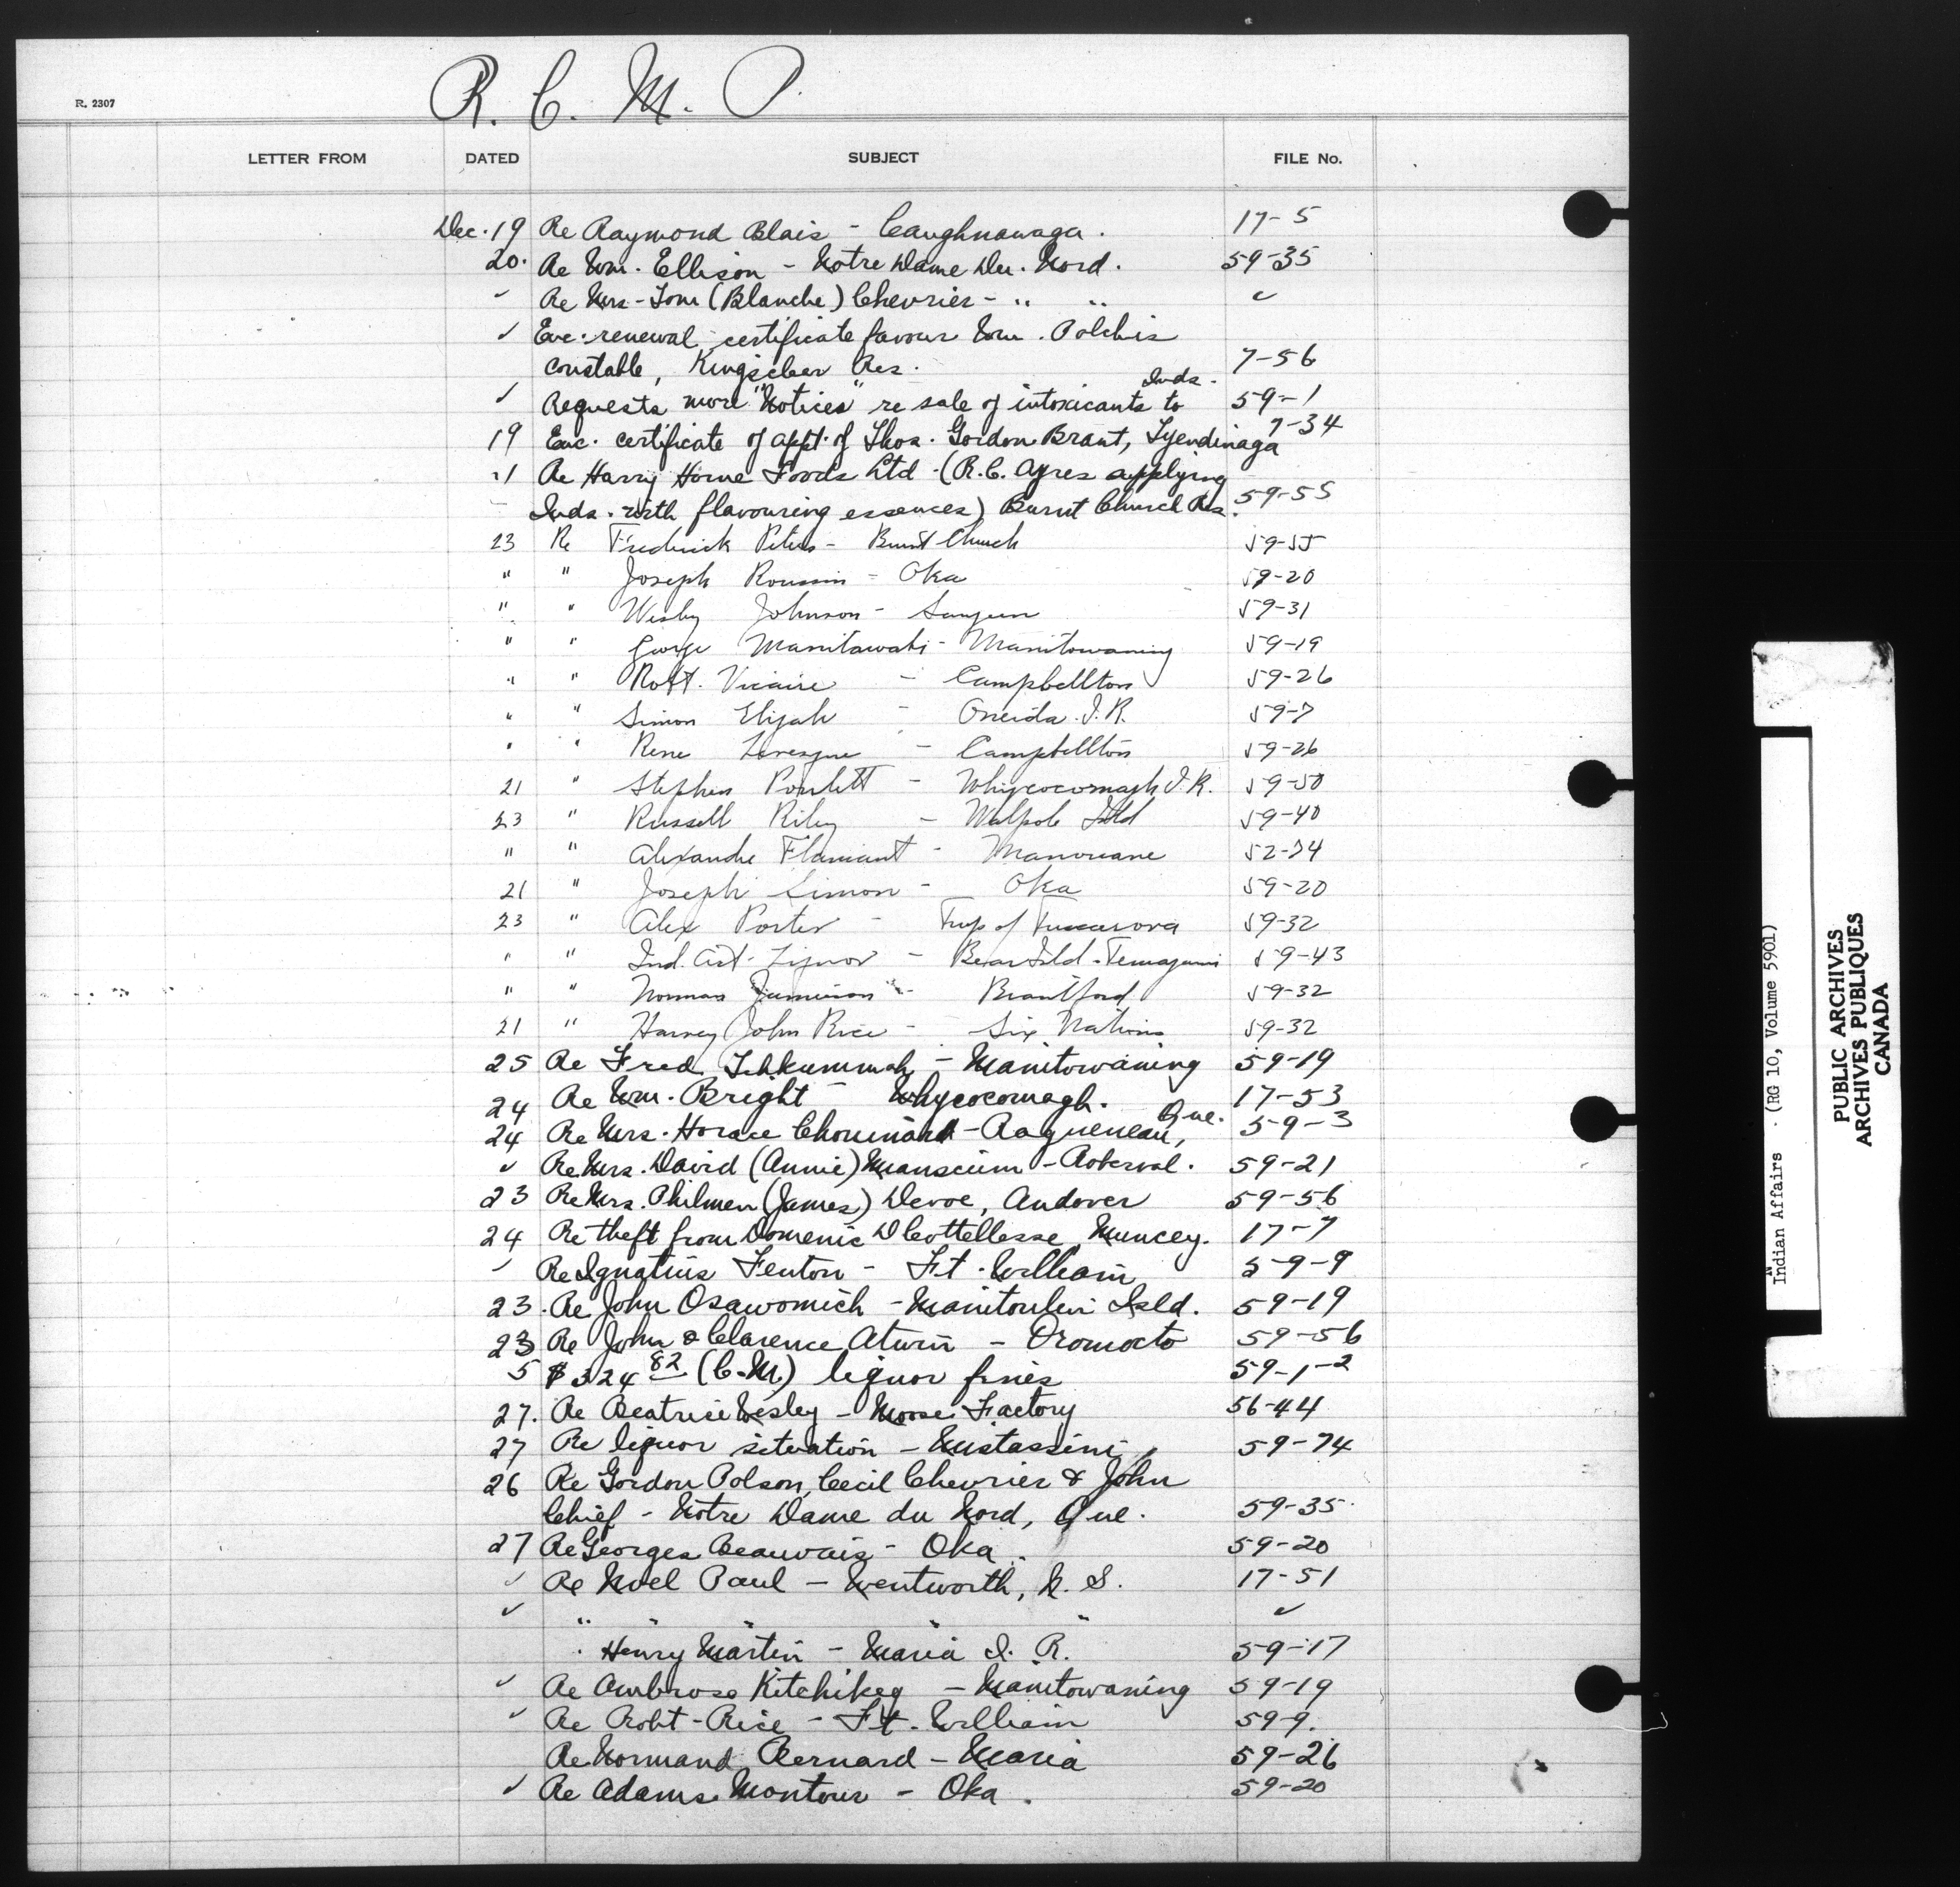 R. C. M. P.
R. 2307
LETTER FROM DATED SUBJECT FILE No.
Dec. 19 Re Raymond Blais - Caughnawaga. 17-5
20. Re Wm. Ellison - Notre Dame Du. Nord. 59-35
✓ Re Mrs. Tom (Blanche) Chevrier - " " ✓
✓ Enc. renewal certificate favour Wm. Polchis
constable, Kingsclear Res. 7-56
Inds.
✓ Requests more "Notices" re sale of intoxicants to 59-1
19 Enc. certificate of appt. of Thos. Gordon Brant, Tyendinaga 7-34
21 Re Harry Horne Foods Ltd. (R.C. Ayres supplying
Inds. with flavouring essences) Burnt Church Res. 59-55
23 Re Frederick Peters - Burnt Church 59-55
" " Joseph Roussin - Oka 59-20
" " Wesley Johnson - Saugeen 59-31
" " George Manitawabi - Manitowaning 59-19
" " Robt. Vicaire - Campbellton 59-26
" " Simon Elijah - Oneida I.R. 59-7
" " Rene Levesque - Campbellton 59-26
21 " Stephen Poulett - Whycocomagh I.R. 59-50
23 " Russell Riley - Walpole Isld 59-40
" " Alexandre Flamant - Manouane 52-74
21 " Joseph Simon - Oka 59-20
23 " Alex Porter - Twp of Tuscarora 59-32
" " Ind. Act - Liquor - Bear Isld - Temagami 59-43
" " Norman Jamieson - Brantford 59-32
21 " Harvey John Rice - Six Nations 59-32
25 Re Fred Tehkummah - Manitowaning 59-19
24 Re Wm. Bright - Whycocomagh. 17-53
Que.
24 Re Mrs. Horace Chouinard - Ragueneau, 59-3
✓ Re Mrs. David (Annie) - Roberval. 59-21
23 Re Mrs. Philmen (James) Devoe, Andover 59-56
24 Re theft from Domenic Muncey. 17-7
✓ Re Ignatius Fenton - Ft. William 59-9
23. Re John Osawomich - Manitoulin Isld. 59-19
23 Re John & Clarence Atwin - Oromocto 59-56
5 $324 82 (C.M.) liquor fines 59-1-2
27. Re Beatrice Wesley - Moose Factory 56-44
27 Re liquor situation - Mistassini 59-74
26 Re Gordon Polson, Cecil Chevrier & John
Chief - Notre Dame du Nord, Que. 59-35
27 Re Georges Beauvais - Oka. 59-20
✓ Re Noel Paul - Wentworth, N. S. 17-51
✓ " " " ✓
" Henry Martin - Maria I. R. 59-17
✓ Re Ambrose Kitchikeg - Manitowaning 59-19
✓ Re Robt. Rice - Ft. William 59-9.
Re Normand Bernard - Maria 59-26
✓ Re Adams Montour - Oka. 59-20
Indian Affairs . (RG 10, Volume 5901)
PUBLIC ARCHIVES
ARCHIVES PUBLIQUES
CANADA